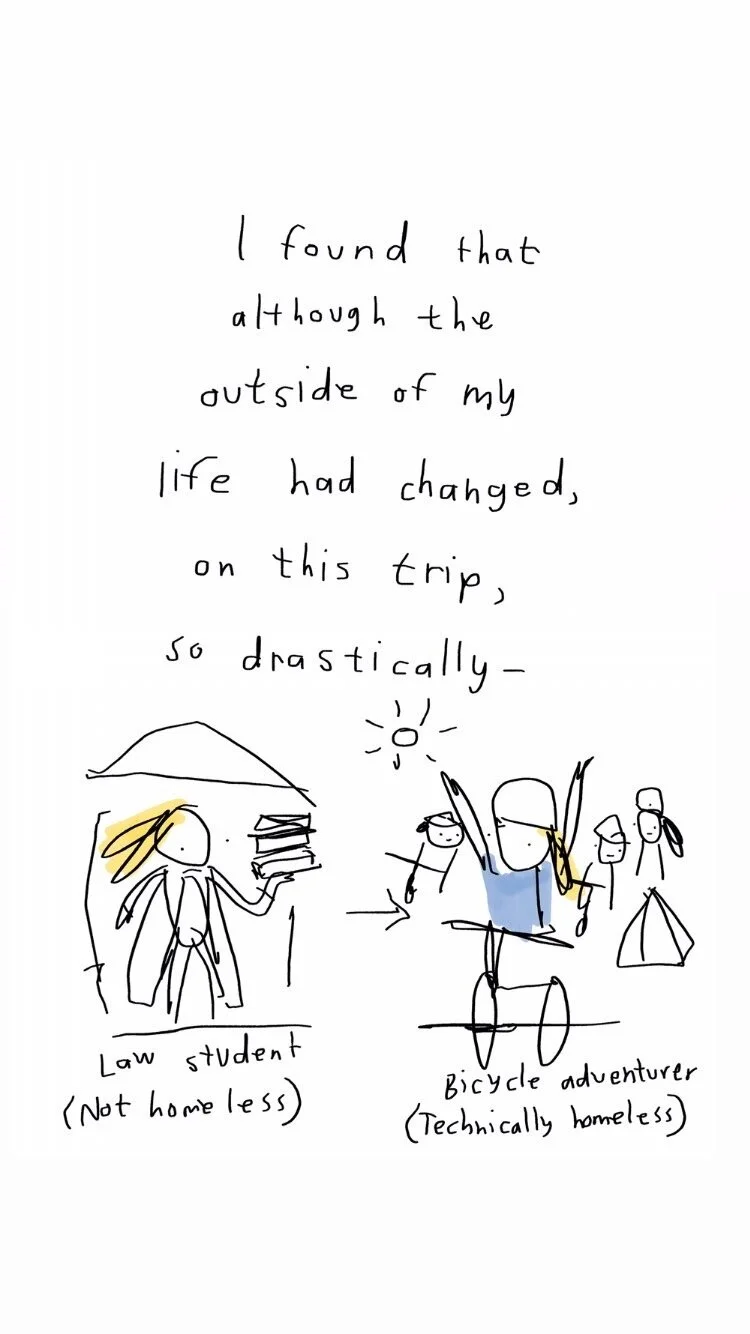 I found that
although the
outside of my
life had changed,
on this trip,
so drastically-
Law student
(Not homeless)
Bicycle adventurer
(Technically homeless)